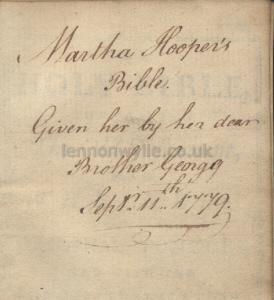 Martha Hooper's
Bible.
Given her by her dear
lennonwylie.co.uk
Brother George
Sept.r 11.th 1779.